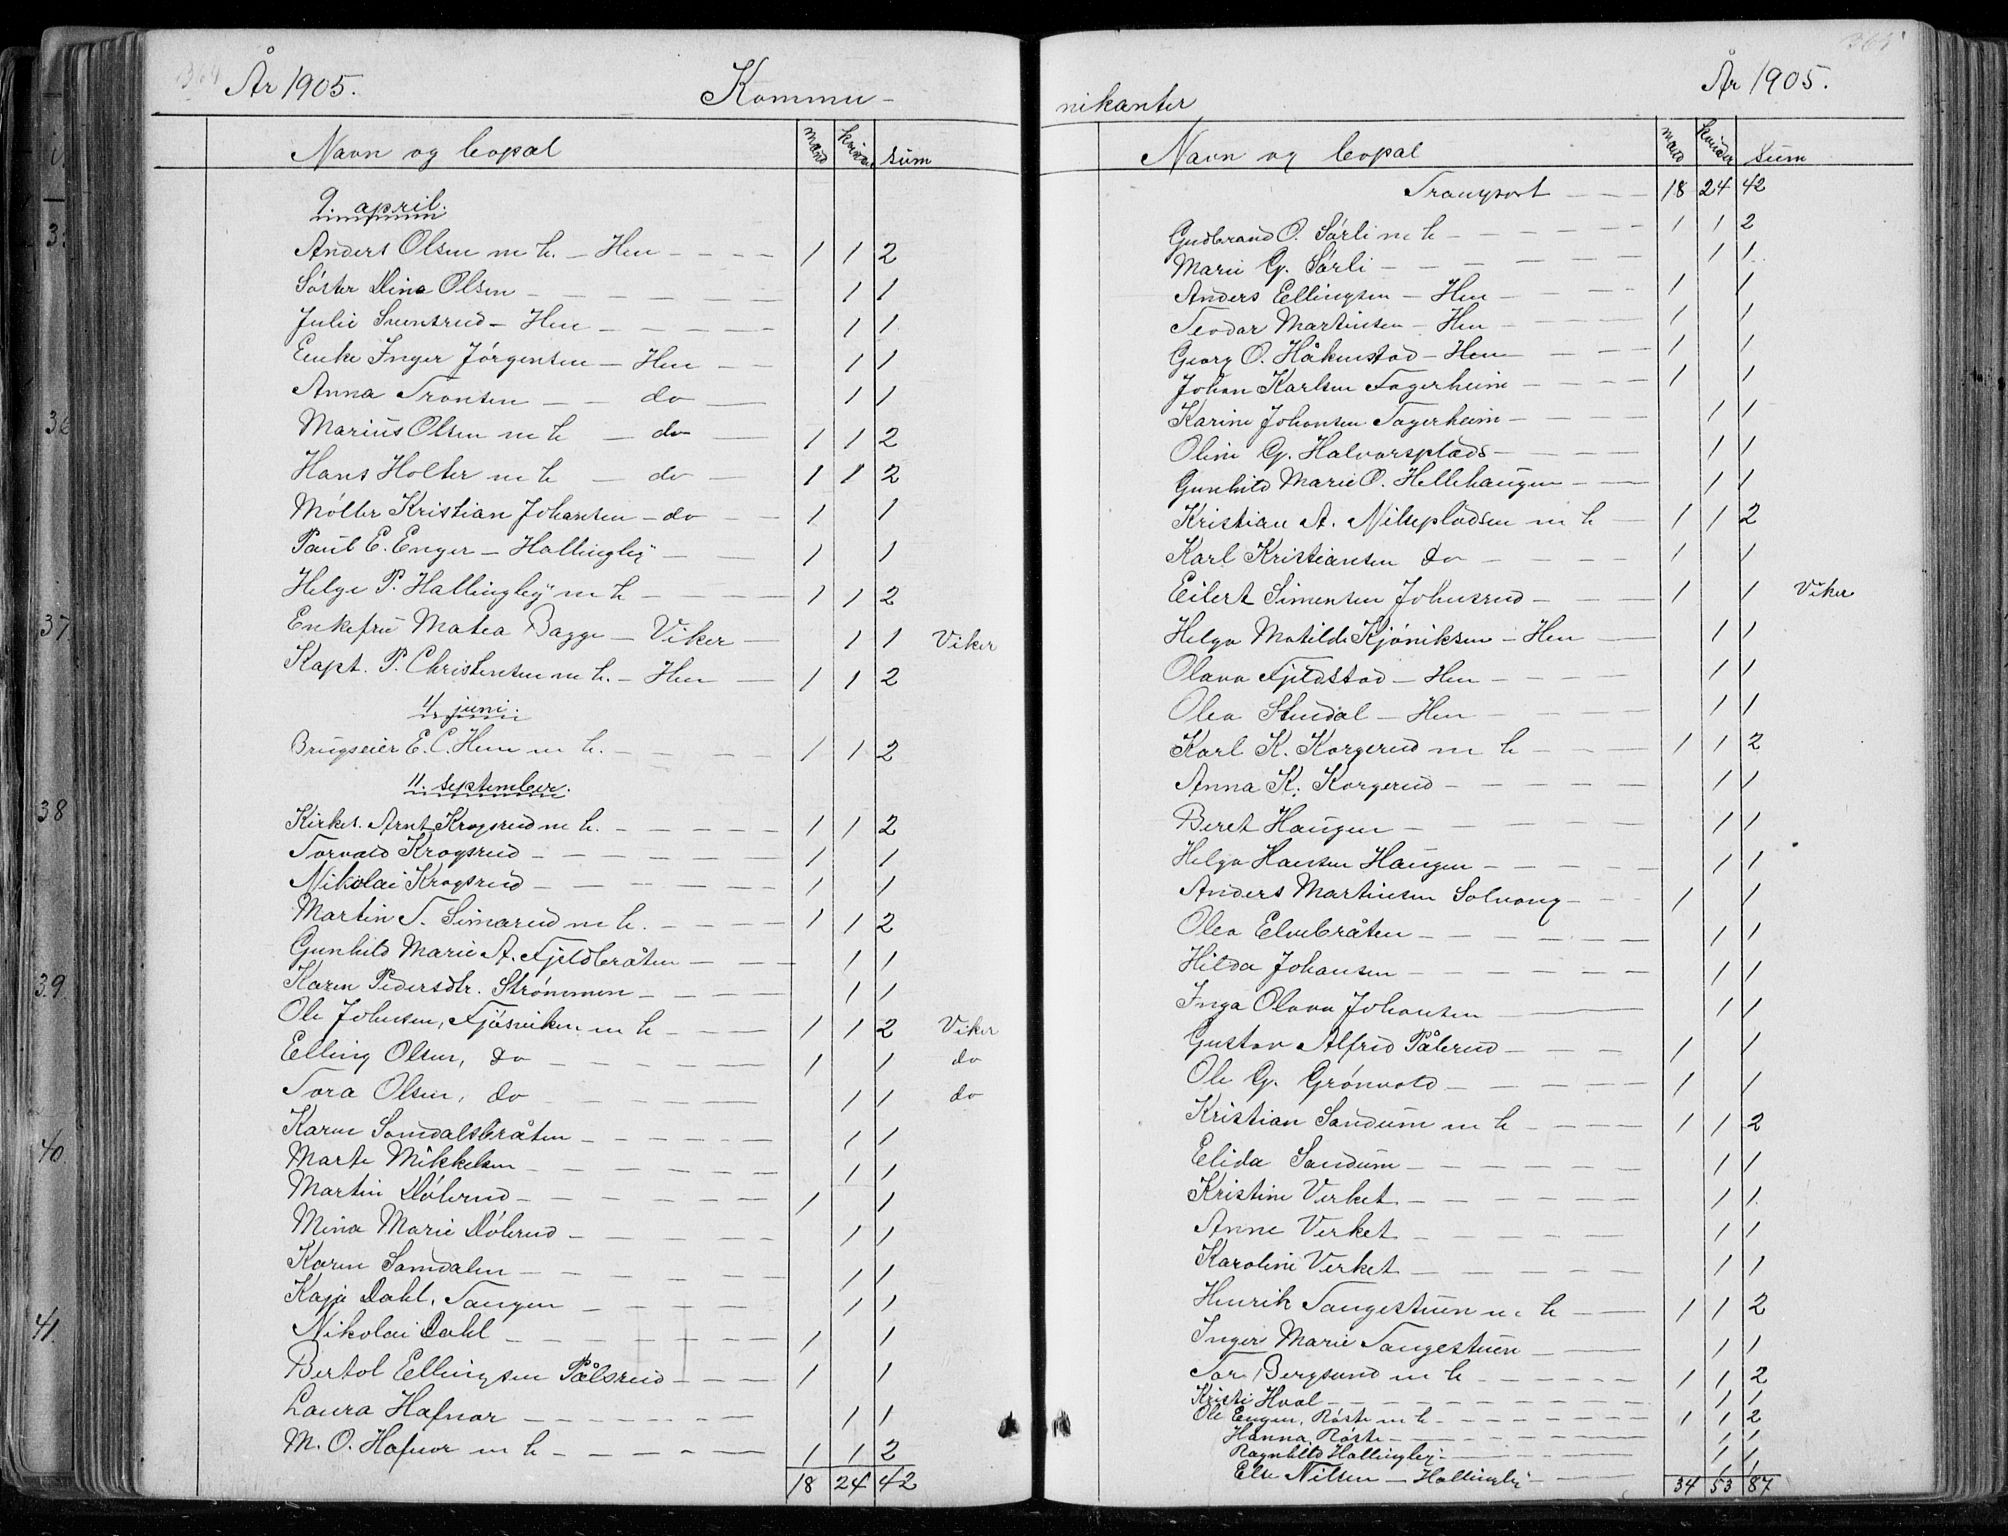 364
År 1905.
Kommu-
Navn og Bopæl
mænd
kvinder
sum
9 april.
Anders Olsen m h. - Hen - - - - 1 1 2
Søster Dina Olsen - - - - - 1 1
Julie Svensrud - Hen - - - - - 1 1
Enke Inger Jørgensen - Hen - - 1 1
Anna Tronsen - - do - 1 1
Marius Olsen m h - do - 1 1 2
Hans Holter m h - do - 1 1 2
Møller Kristian Johansen - do - - 1 1
Paul E. Enger - Hallingby - - - 1 1
Helge P. Hallingby m h - - - - 1 1 2
Enkefru Matea Bagge - Viker - 1 1 Viker
Kapt. P. Christensen m h. - Hen - 1 1 2
11 juni.
Brugseier E. C. Hen m h. - - - - 1 1 2
11. september.
Kirkes. Arnt Krogsrud m h. - - - - - 1 1 2
Torvald Krogsrud - - - - - - 1 1
Nikolai Krogsrud - - - - - 1 1
Martin T. Simarud m h. - - - - 1 1 2
Gunhild Marie A. Fjeldbråten - - - 1 1
Karen Pedersdtr. Strømmen - - - - 1 1
Ole Johnsen, Fjøsviken m h - - - 1 1 2 Viker
Elling Olsen, do - - - - - 1 1 do
Tora Olsen, do - - - - - 1 1 do
Karen Somdalsbråten - - - - - 1 1
Marte Mikkelsen - - - - - - 1 1
Martin Dølerud - - - - - - 1 1
Mina Marie Dølerud - - - - - 1 1
Karen Somdalen - - - - - - 1 1
Kaja Dahl, Tangen - - - - - 1 1
Nikolai Dahl - - - - - - 1 1
Bertol Ellingsen Pålsrud - - - - 1 1
Laura Hafnor - - - - - - 1 1
M. O. Hafnor m h - - - - - 1 1 2
18 24 42
365
År 1905.
nikanter
Navn og Bopæl
mænd
kvinder
Sum
Transport - - - 18 24 42
Gudbrand O. Sørli m h - - - - - - 1 1 2
Marie G. Sørli - - - - - - 1 1
Anders Ellingsen - Hen - - - - 1 1
Teodor Martinsen - Hen - - - - 1 1
Georg O. Håkenstad - Hen - - - - 1 1
Johan Karlsen Fagerheim - - - - 1 1
Karine Johansen Fagerheim - - - - 1 1
Oline G. Halvorsplads - - - - - 1 1
Gunhild Marie O. Hellehaugen - - - 1 1
Kristian A. Nilsepladsen m h - 1 1 2
Karl Kristiansen do - - - - - 1 1
Eilert Simensen Johnsrud - - - - 1 1 Viker
Helga Matilde Kjøniksen - Hen - 1 1
Olava Fjeldstad - Hen - - - - - 1 1
Olea Stendal - Hen - - - - - 1 1
Karl K. Korgerud m h - - - 1 1 2
Anna K. Korgerud - - - - - 1 1
Beret Haugen - - - - - - 1 1
Helga Hansen Haugen - - - - - 1 1
Anders Martinsen Solvang - - - 1 1
Olea Elvebråten - - - - - - 1 1
Hilda Johansen - - - - - - 1 1
Inga Olava Johansen - - - 1 1
Gustav Alfred Pålerud - - - - - 1 1
Ole G. Grønvold - - - - - - 1 1
Kristian Sandum m h - - - - 1 1 2
Elida Sandum - - - - - - 1 1
Kristine Verket - - - - - - 1 1
Anne Verket - - - - - - 1 1
Karoline Verket - - - - - - 1 1
Henrik Tangestuen m h - - 1 1 2
Inger Marie Tangestuen - - - 1 1
Tor Bergsund m h - - - - - 1 1 2
Kristi Hval - - - - - - - 1 1
Ole Engen, Røste m h - - - - - 1 1 2
Hanna Røste - - - - - - 1 1
Ragnhild Hallingby - - - - - 1 1
Else Nilsen - Hallingby - - - 1 1
34 53 87
35
36
37
38
39
40
41.